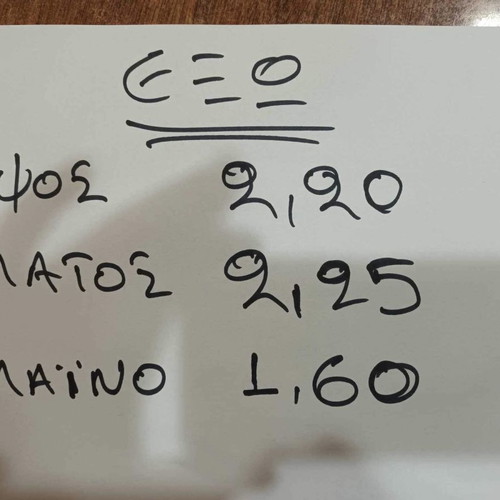 ΕΞΟ
ΨΟΣ 2,20
ΛΑΤΟΣ 2,25
ΛΑΪΝΟ 1,60